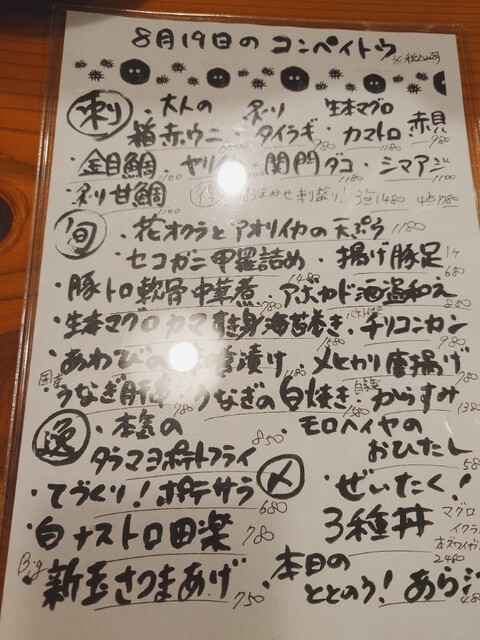 8月19日のコンペイトウ
刺 ・大人の箱赤ウニ ・炙りタイラギ 780 ・生本マグロカマトロ 1180 ・赤貝 980
・金目鯛 1100 ・ヤリイカ ・関門ダコ 1100 ・シマアジ 1100
・炙り甘鯛 1100 おまかせ刺盛り! 3点1480
旬 ・花オクラとアオリイカの天ぷら 1180
・セコガニ甲羅詰め 1480 ・揚げ豚足 1ヶ 680
・豚トロ軟骨中華煮 780 ・アボカド海温和え 880
・生本マグロカマすき身海苔巻き 1180 ・チリコンカン 980
・あわびの 漬け 1580 ・メヒカリ唐揚げ 780
国産 うなぎ肝 780 うなぎの白焼き 1580 自家製 からすみ 1380
逸 ・本気のタラマヨポテトフライ 850
・モロヘイヤのおひたし 58
・てづくり!ポテサラ 680
・白ナストロ田楽 780
Big 新玉さつまあげ 750
〆 ・ぜいたく!3種丼 マグロ イクラ 2480
・本日のととのう!あら汁 48